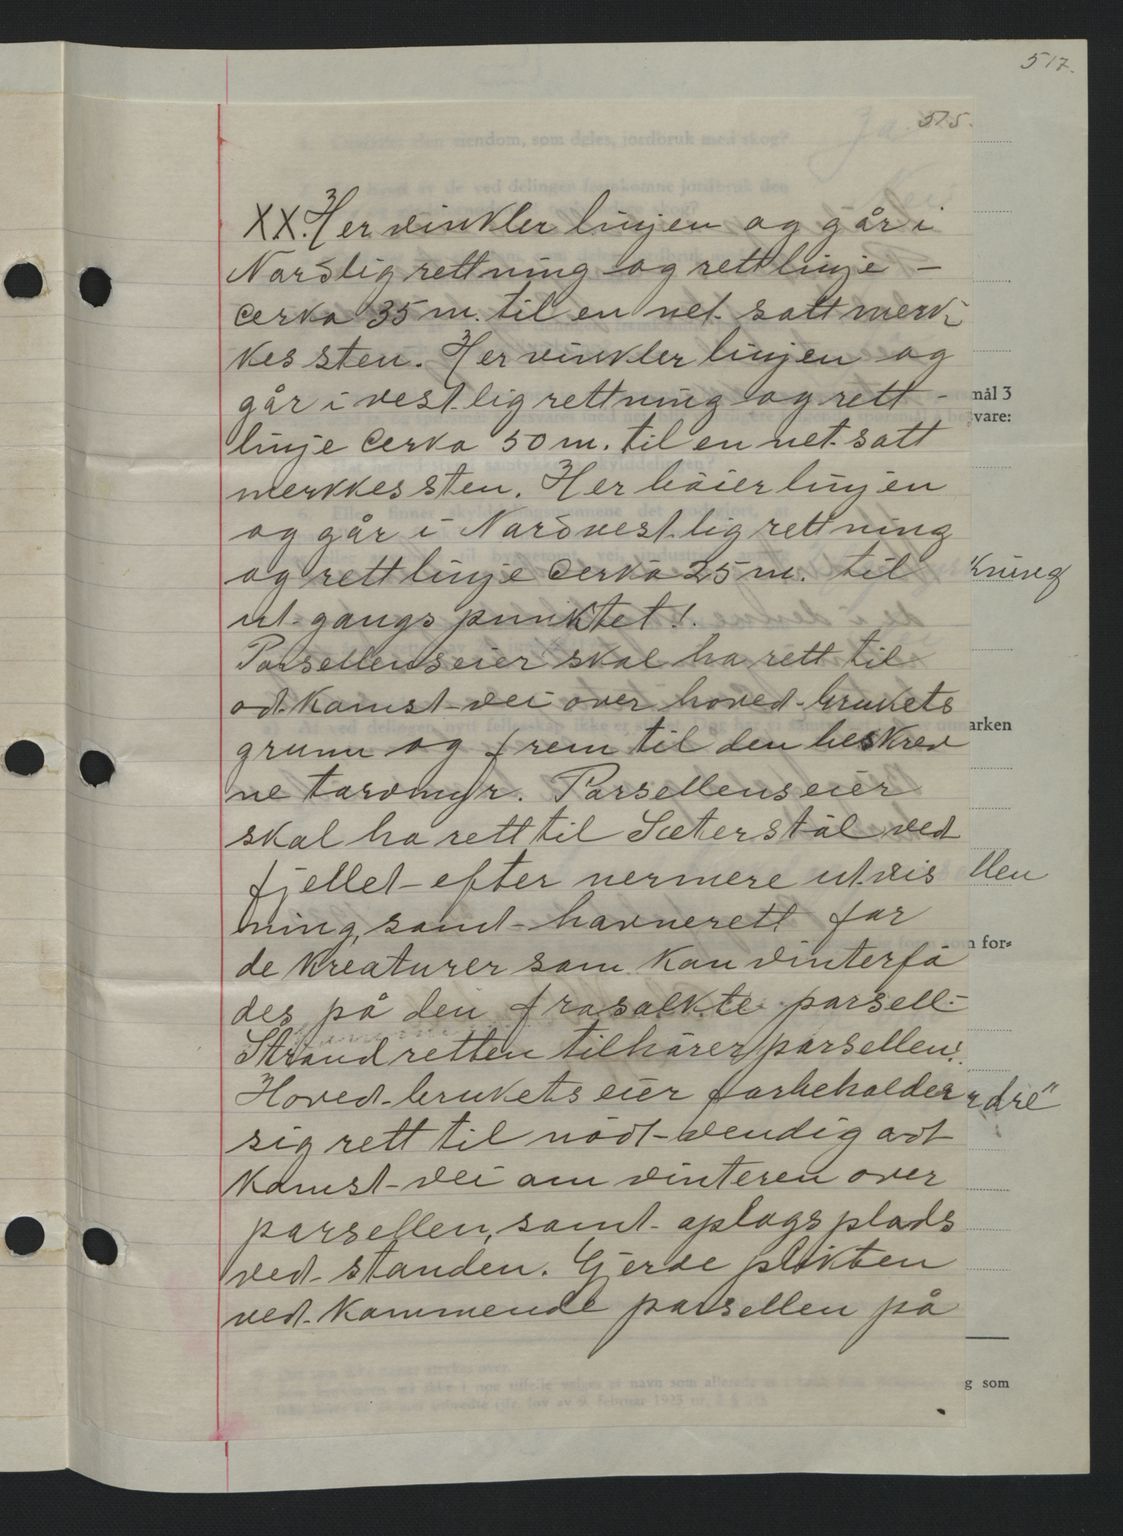 517.
515.
XX. Her vinkler linjen og går i
Nordlig rettning og rettlinje -
cerka 35 m. til en net satt merk-
kes sten. Her vinkler linjen og
går i vestlig rettning og rett-
linje cerka 50 m. til en net satt
merkkes sten. Her böier linjen
og går i Nordvestlig rettning
og rettlinje cerka 25 m. til
ut-gangs punktet!.
Parsellens eier skal ha rett til
ad-komst-vei over hoved-brukets
grunn og frem til den beskrev
ne torvmyr. Parsellens eier
skal ha rett til Sæterstöl ved
fjellet-efter nermere utvis
ning, samt-havnerett for
de kreaturer som kan vinterfö
des på den fraskilte parsell.-
Strandretten tilhörer parsellen!.
Hoved-brukets eier forbeholder
sig rett til nöd-vendig ad-
komst-vei om vinteren over
parsellen, samt-oplagsplads
ved-standen. Gjerde plikten
ved-kommende parsellen på
mål 3
vare:
kning
arken
llen
n for=
rdre"
g som